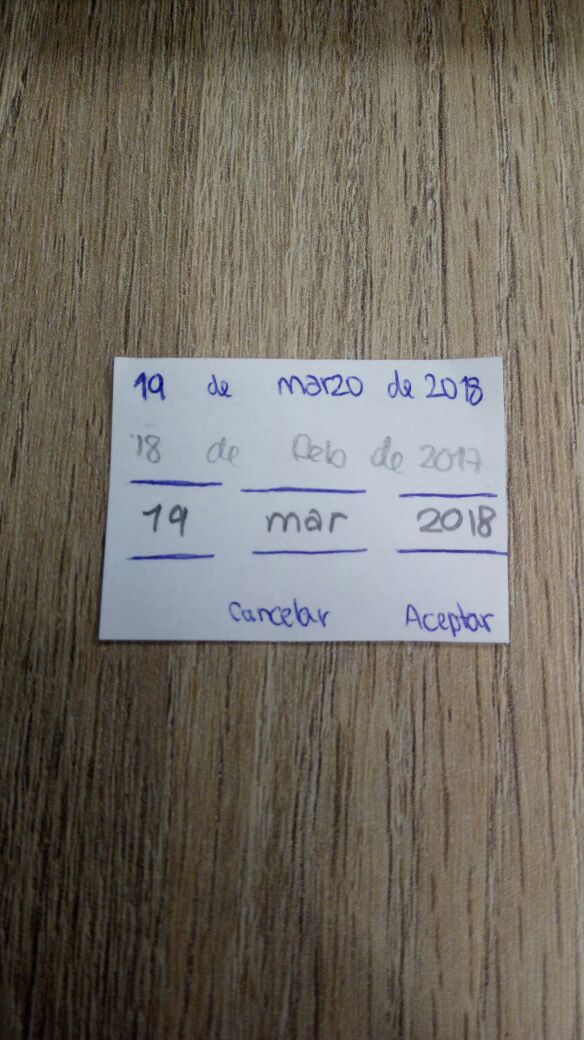 19 de marzo de 2018
18 de de 2017
19 mar 2018
Cancelar Aceptar